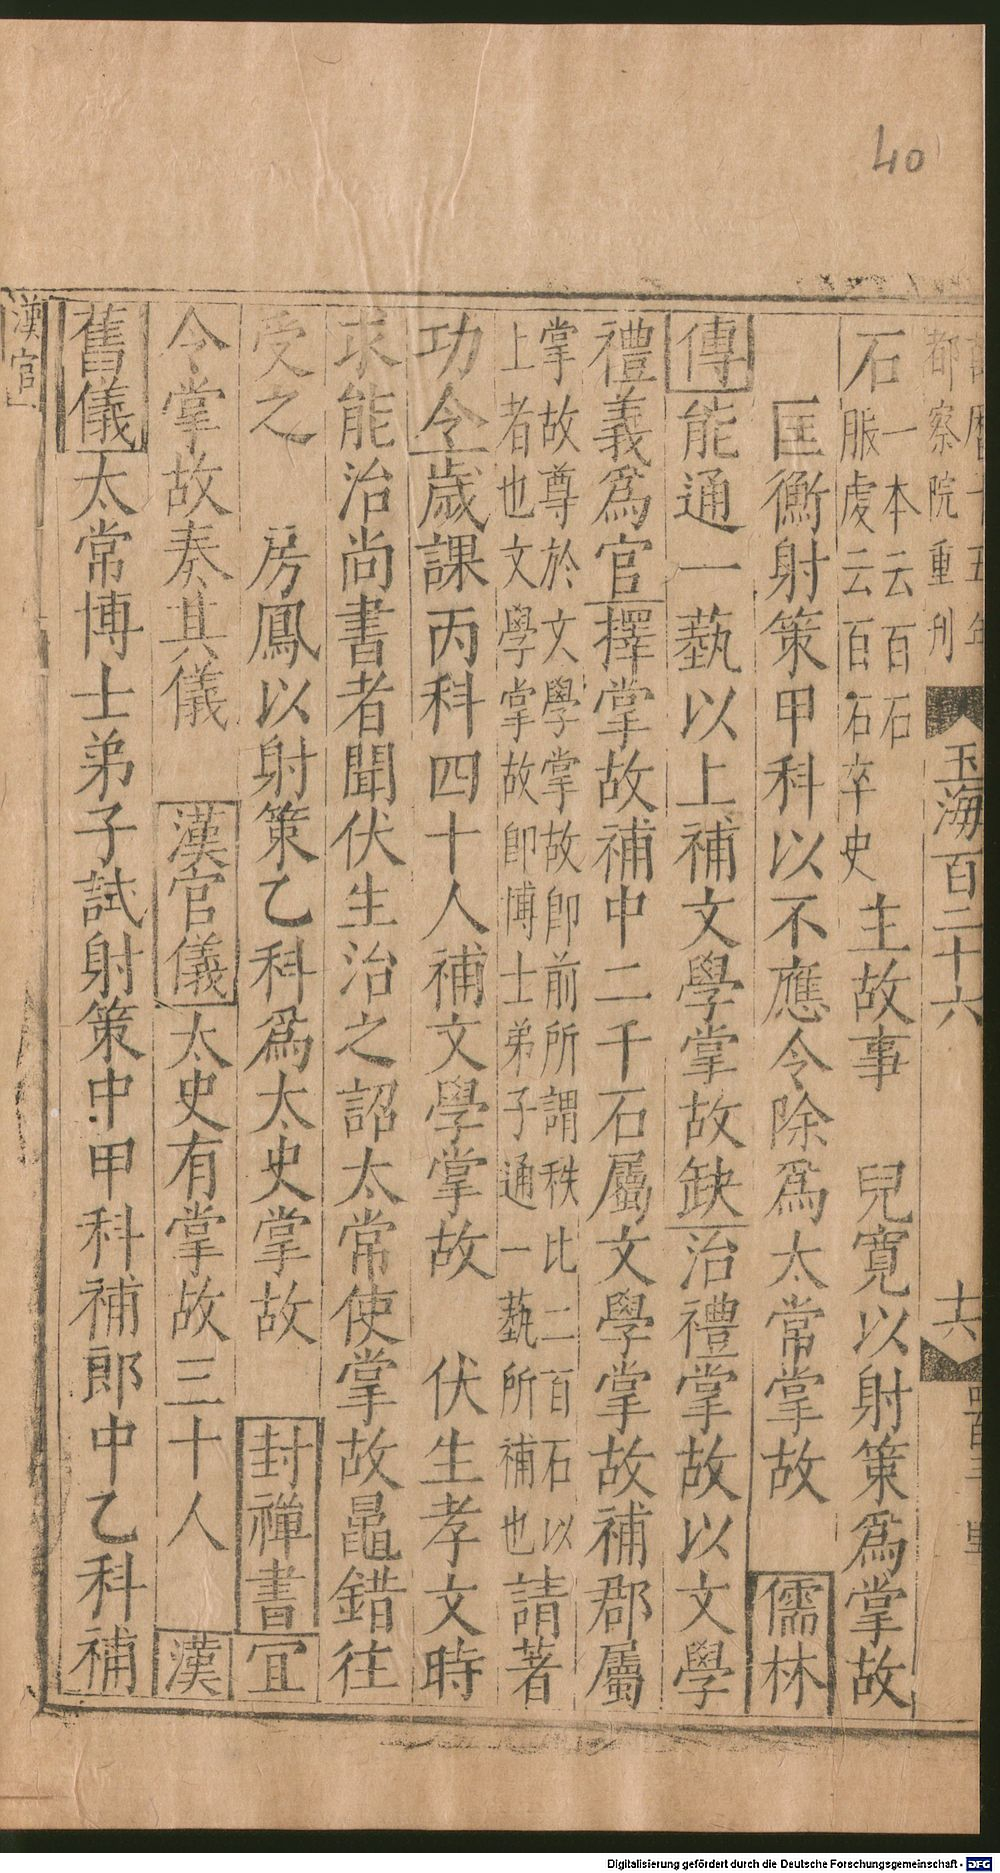 40
都察院重刋
玉海百二十六
十六
石一本云百石
脤䖍云百石卒史
主故事　兒寬以射策爲掌故
匡衡射策甲科以不應令除爲太常掌故　儒林
傳能通一藝以上補文學掌故缺治禮掌故以文學
禮義爲官擇掌故補中二千石屬文學掌故補郡屬
掌故尊於文學掌故即前所謂秩比二百石以
上者也文學掌故即博士弟子通一藝所補也請著
功令歲課丙科四十人補文學掌故　伏生孝文時
求能治尚書者聞伏生治之詔太常使掌故鼂錯往
受之　房鳳以射策乙科爲太史掌故　封禪書宜
令掌故奏其儀　漢官儀太史有掌故三十人　漢
舊儀太常博士弟子試射策中甲科補郎中乙科補
漢官
Digitalisierung gefördert durch die Deutsche Forschungsgemeinschaft - DFG